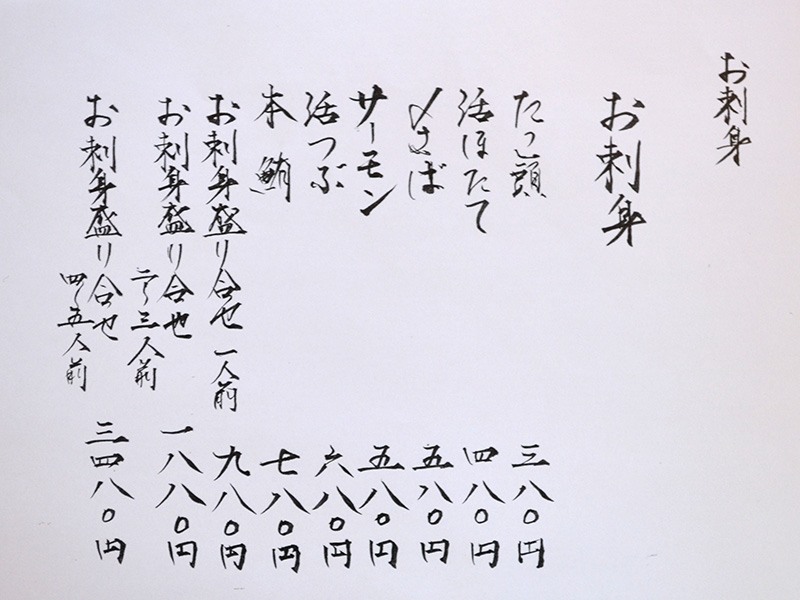 お刺身
お刺身
たこ頭 三八〇円
活ほたて 四八〇円
〆さば 五八〇円
サーモン 五八〇円
活つぶ 六八〇円
本鮪 七八〇円
お刺身盛り合せ 一人前 九八〇円
お刺身盛り合せ 二〜三人前 一八八〇円
お刺身盛り合せ 四〜五人前 三四八〇円